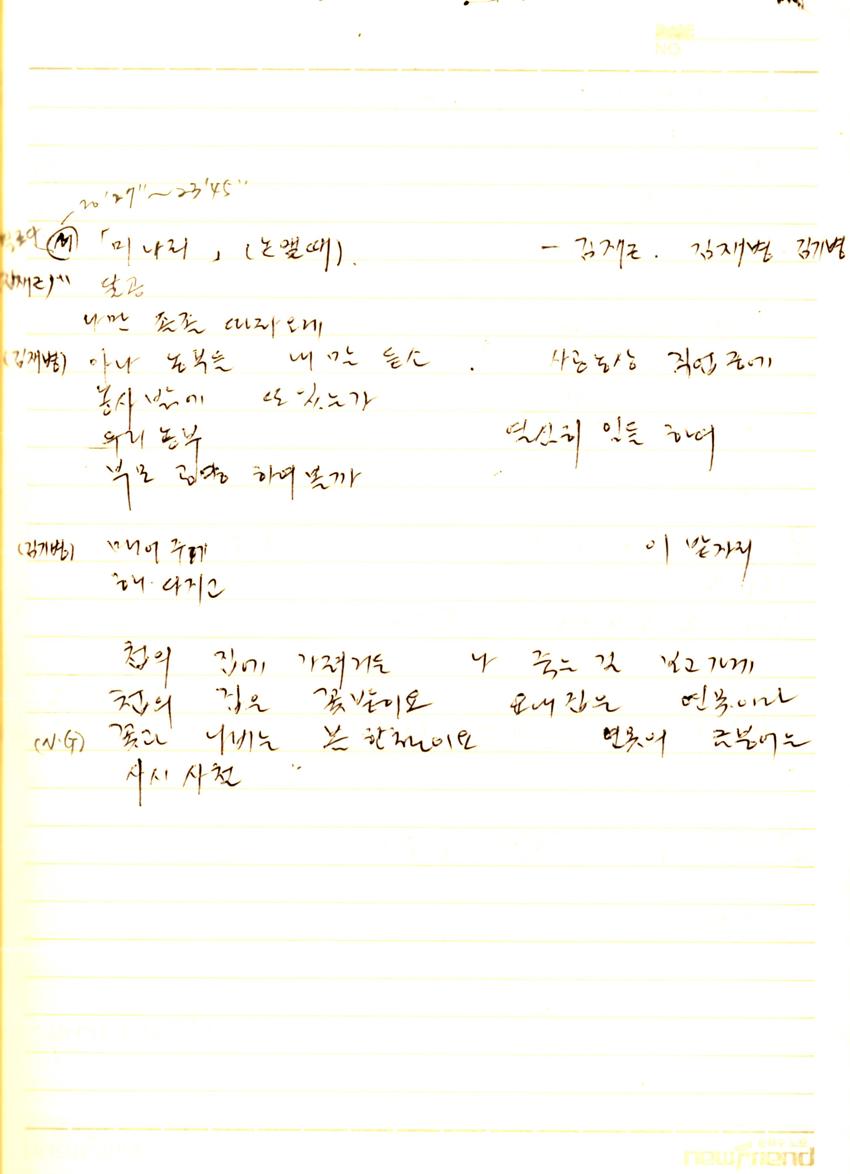 20'27"~23'45"
「미나리」 (논맬때). - 김재근. 김재병 김기병
달공
나만 졸졸 따라오게
(김재병) 아나 농부들 내 말 듣소. 사농공상 직업 중에
농사 밖에 또 있는가
우리 농부 열심히 일들 하여
부모 공양 하여볼까
(김기병) 매어 주게 이 밭자리
해 다지고
첩의 집에 가려거든 나 죽는 걸 보고 가게
첩의 집은 꽃밭이요 요내 집은 연못이라
(N.G) 꽃과 나비는 봄 한철이요 연못에 금붕어는
사시 사철 "
NO
newFriend